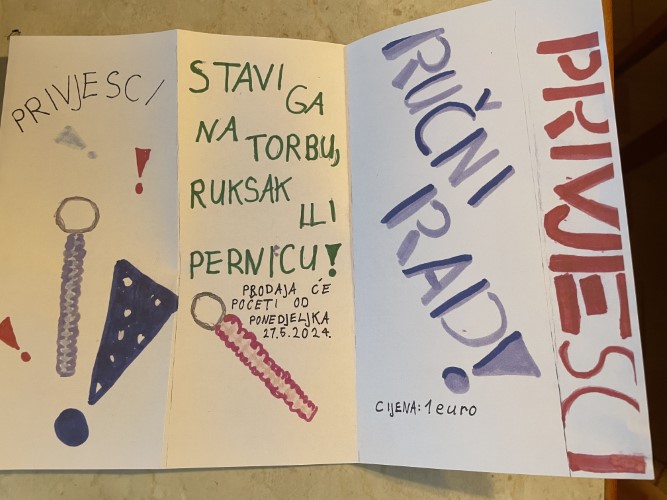 PRIVJESCI
STAVI GA
NA TORBU,
RUKSAK
ILI
PERNICU!
PRODAJA ĆE
POČETI OD
PONEDJELJKA
27.5.2024.
RUČNI
RAD!
CIJENA: 1 euro
PRIVJESCI